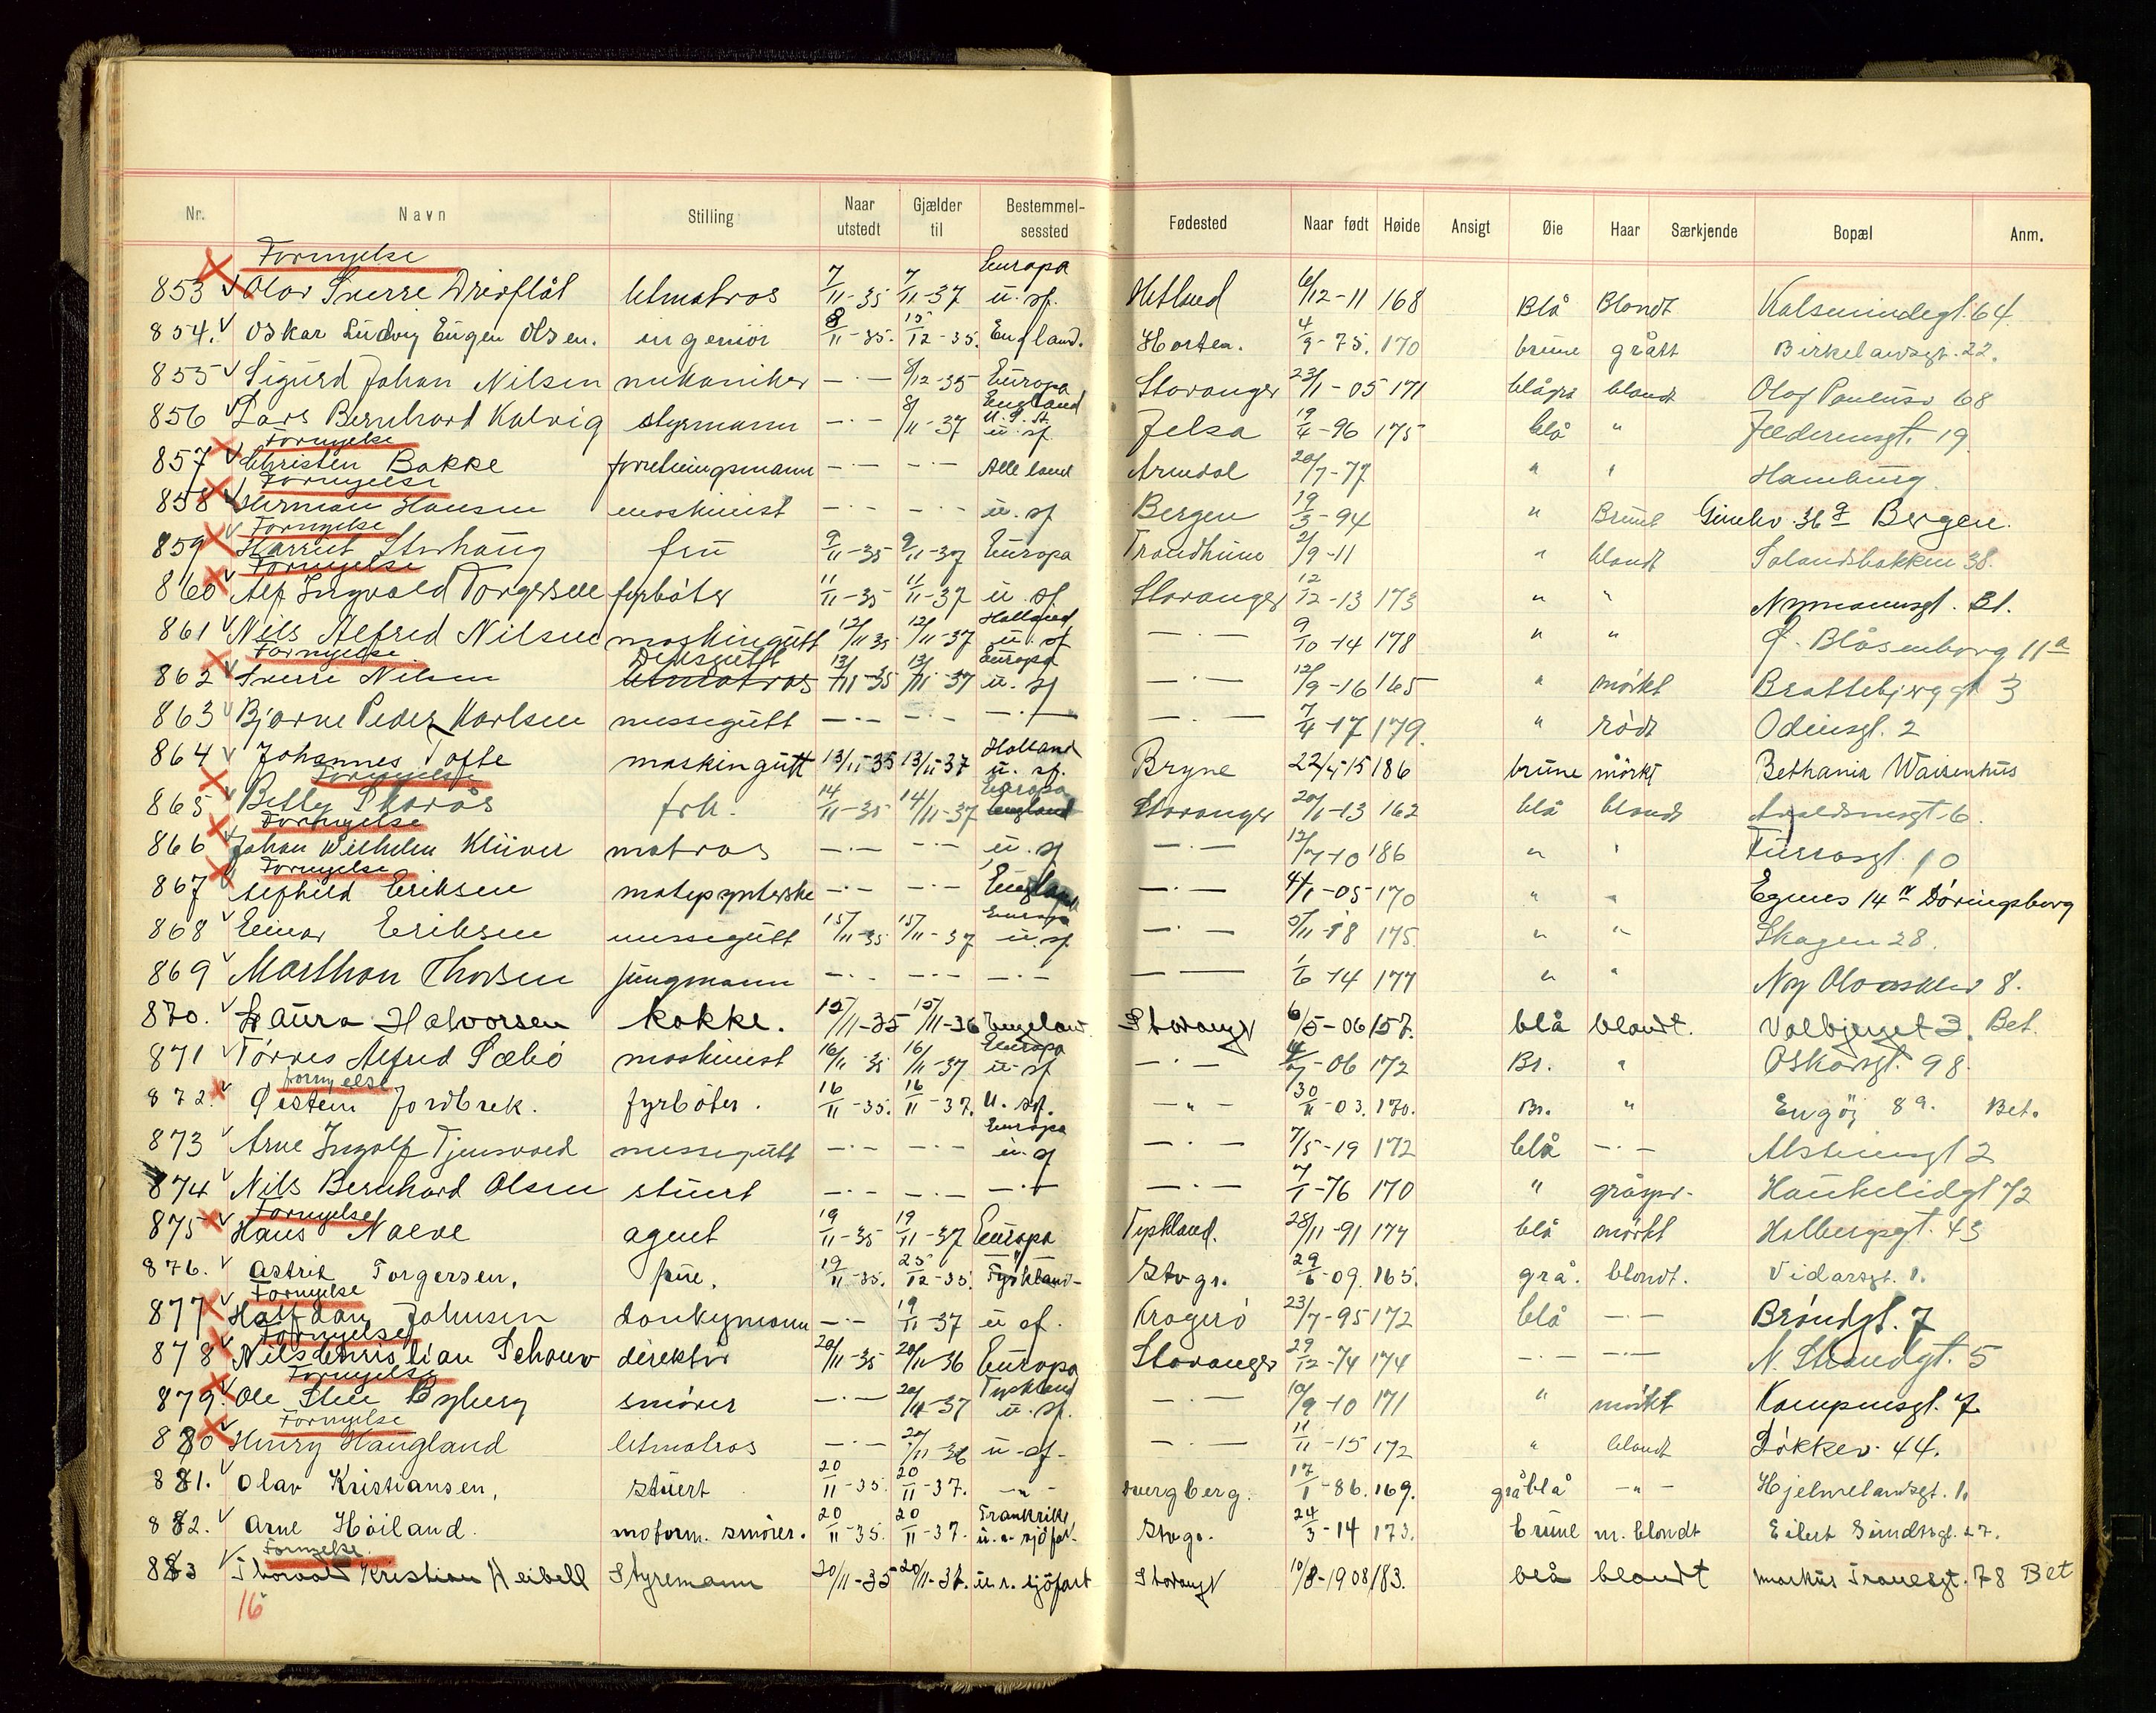 Nr. Navn Stilling Naar utstedt Gjælder til Bestemmelsessted Fødested Naar født Høide Ansigt Øie Haar Særkjende Bopæl Anm.
Fornyelse Europa
853 Olav Sverre letmatros 7/11-35 7/11-37 u. sf. Hetland 6/12-11 168 Blå Blondt 64
854. Oskar Ludvig Eugen Olsen. ingeniör 8/11-35. 15/12-35. England. Horten. 4/9-75. 170 brune grått Birkelandsgt. 22.
855 Sigurd Johan Nilsen mekaniker —·— 8/12-35 Europa Stavanger 23/11-05 171 blågrå blondt Olaf Pauluss 68
England
856 Lars Bernhard Kalvig styrmann —·— 8/11-37 U.S.A. u. sf. Jelsa 19/4-96 175 blå " 19
Fornyelse
857 Christen Bakke forretningsmann —·— —·— Alle land Arendal 20/7-77 " " Hamburg.
Fornyelse
858 Herman Hansen maskinist —·— —·— u. sf Bergen 19/3-94 " Brunt 36 Bergen.
Fornyelse
859 Harriet fru 9/11-35 9/11-37 Europa Trondheim 2/9-11 " blondt 38.
Fornyelse
860 Alf Ingvald Torgersen fyrböter 11/11-35 11/11-37 u. sf Stavanger 12/12-13 173 " " Nymannsgt. 31.
Holland
861 Nils Alfred Nilsen maskingutt 12/11 35 12/11-37 u. sf —·— 9/10-14 178 " " Ø. Blåsenborg 11a
Fornyelse Dekksgutt Europa
862 Sverre Nilsen letmatros 13/11-35 13/11-37 u. sf —·— 12/9-16 165 " mörkt Brattebjerggt 3
863 Bjarne Peder Karlsen messegutt —·— —·— —·— —·— 7/4-17 179. " rödt Odinsgt. 2
Holland
864 Johannes Tofte maskingutt 13/11-35 13/11-37 u. sf. Bryne 22/4-15 186 brune mörkt Bethania Waisenhus
Fornyelse Europa
865 Betty Skarås frk. 14/11-35 14/11-37 England Stavanger 20/1-13 162 blå blondt 6.
Fornyelse
866 Johan Wilhelm Klüver matros —·— —·— u. sf —·— 12/7-10 186 " " Furrasgt. 10
Fornyelse
867 Alfhild Eriksen —·— —·— England —·— 4/1-05 170 " " Egenes 14 Döringsborg
Europa
868 Einar Eriksen messegutt 15/11-35 15/11-37 u. sf —·— 5/11-18 175. " " Skagen 28.
869 Marthon Thorsen jungmann —·— —·— —·— — — 1/6-14 177 " " Ny Olavskleiv 8.
870. Laura Halvorsen kokke. 15/11-35 15/11-36 England Stavanger 6/5-06 157. blå blondt. Valbjerget 3. Bet.
Europa
871 Törres Alfred Sæbö maskinist 16/11-35 16/11-37 u. sf —·— 06 172 Br. " Oskarsgt. 98.
Fornyelse
872. Øistein Jordbrek. fyrböter. 16/11-35. 16/11-37. U. sf. —"— 30/11-03. 170. Br. " Engöy 89. Bet.
Europa
873 Arne Ingolf messegutt —·— —·— u. sf —·— 7/5-19 172 blå —·— 2
874 Nils Bernhard Olsen stuert —·— —·— —·— —·— 7/1-76 170 " gråspr. Haukelidgt 72
Fornyelse
875 Hans Naeve agent 19/11-35 19/11-37 Europa Tyskland. 28/11-91 177 blå mörkt Holbergsgt. 43
876. Astrid Torgersen, frue. 19/11-35. 23/12-35. Tyskland- Stvgr. 29/6-09. 165. grå. blondt. Vidarsgt. 1.
Fornyelse
877 Halfdan Johnsen donkeymann —·— 19/11-37 u sf. Kragerö 23/7-95 172 blå —·— Bröndgt. 7
Fornyelse
878 Nils Christian Schanv direktör 20/11-35 20/11-36 Europa Stavanger 29/12-74 174 —·— —·— N. Strandgt. 5
Fornyelse Tyskland
879. Ole Byberg smörer —·— 20/11-37 u. sf. —·— 10/9-10 171 " mörkt Kampensgt. 7
Fornyelse
880 Henry Haugland letmatros —·— 20/11-36 u. sf- —·— 11/11-15 172 " blondt Løkkev. 44.
881. Olav Kristiansen, stuert 20/11-35. 20/11-37. —"— 17/1-86. 169. gråblå —"— Hjelmelandsgt. 1.
882. Arne Höiland. motorm. smörer. 20/11-35. 20/11-37. Frankrike u. r. sjöfart. Stvgr. 24/3-14 173. brune m. blondt Eilert Sundtsgt. 27.
Fornyelse.
883 Thorvald Kristian Heibell Styremann 20/11-35 20/11-37. u. r. sjöfart Stavanger 10/8-1908 183. blå blondt Markus Tranesgt. 78 Bet
16